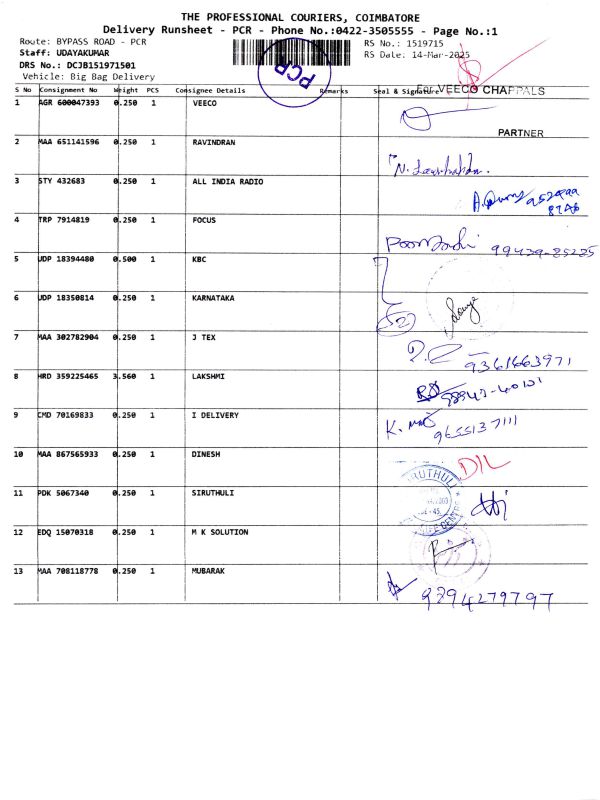 THE PROFESSIONAL COURIERS, COIMBATORE
Delivery Runsheet - PCR - Phone No.:0422-3505555 - Page No.:1
Route: BYPASS ROAD - PCR
RS No.: 1519715
Staff: UDAYAKUMAR
RS Date: 14-Mar-2025
DRS No.: DCJB151971501
Vehicle: Big Bag Delivery
PCR
S No Consignment No Weight PCS Consignee Details Remarks Seal & Signature
For VEECO CHAPPALS
1 AGR 600047393 0.250 1 VEECO
PARTNER
2 MAA 651141596 0.250 1 RAVINDRAN
3 STY 432683 0.250 1 ALL INDIA RADIO
4 TRP 7914819 0.250 1 FOCUS
99439-85225
5 UDP 18394480 0.500 1 KBC
6 UDP 18350814 0.250 1 KARNATAKA
7 MAA 302782904 0.250 1 J TEX
9361663971
8 HRD 359225465 3.560 1 LAKSHMI
9 CMD 70169833 0.250 1 I DELIVERY
9655137111
10 MAA 867565933 0.250 1 DINESH
D/L
11 PDK 5067340 0.250 1 SIRUTHULI
12 EDQ 15070318 0.250 1 M K SOLUTION
13 MAA 708118778 0.250 1 MUBARAK
9294279797